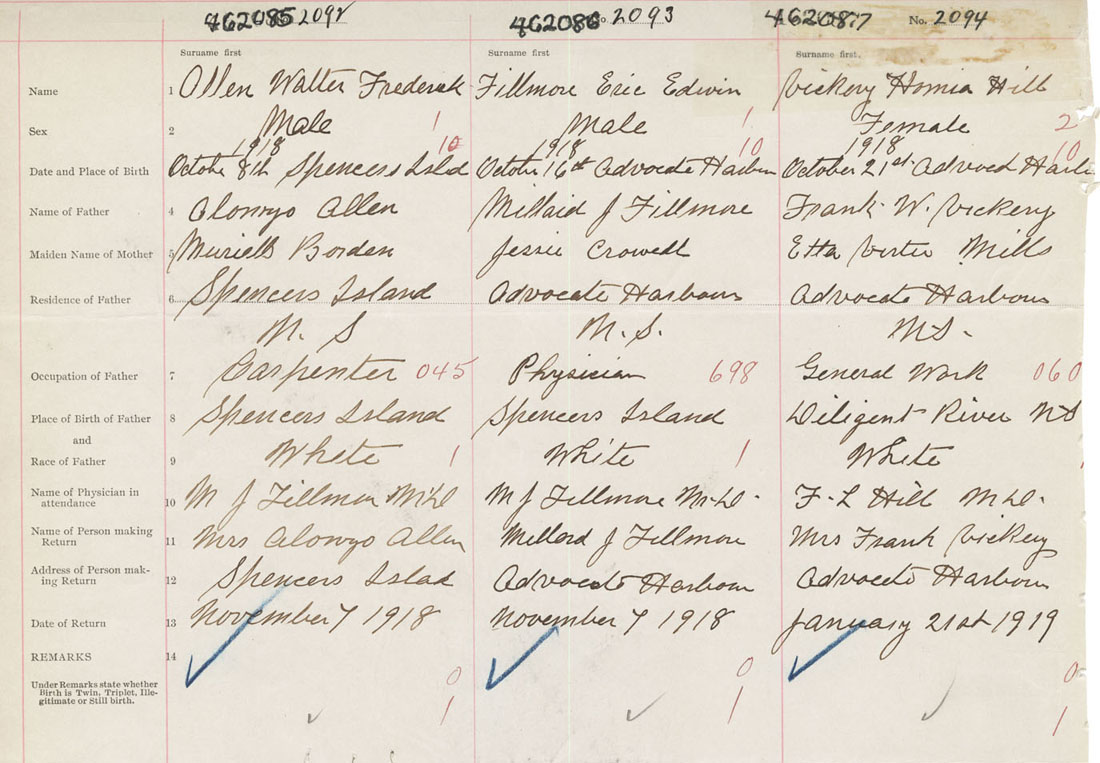 462085 2092 462086 No. 2093 462087 No. 2094
Surname first Surname first Surname first.
Name 1 Allen Walter Frederick Fillmore Eric Edwin Vickery Hill
Sex 2 Male 1 Male 1 Female 2
1918 10 1918 10 1918 10
Date and Place of Birth October 8th Spencers Island October 16th Advocate Harbour October 21st Advocat Harbo
Name of Father 4 Alonzo Allen Millard J Fillmore Frank W. Vickery
Maiden Name of Mother 5 Borden Jessie Crowell Etta Mills
Residence of Father 6 Spencers Island Advocate Harbour Advocate Harbour
N. S N. S. N S.
Occupation of Father 7 Carpenter 045 Physician 698 General Work 060
Place of Birth of Father 8 Spencers Island Spencers Island Diligent River N S
and
Race of Father 9 White 1 White 1 White
Name of Physician in attendance 10 M J Fillmore M.D M J Fillmore M.D. F. L Hill M.D.
Name of Person making Return 11 Mrs Alonzo Allen Millard J Fillmore Mrs Frank Vickery
Address of Person mak-ing Return 12 Spencers Islad Advocate Harbour Advocate Harbour
Date of Return 13 November 7 1918 November 7 1918 January 21st 1919
REMARKS 14
Under Remarks state whether 0 0 0
Birth is Twin, Triplet, Ille-
gitimate or Still birth. 1 1 1